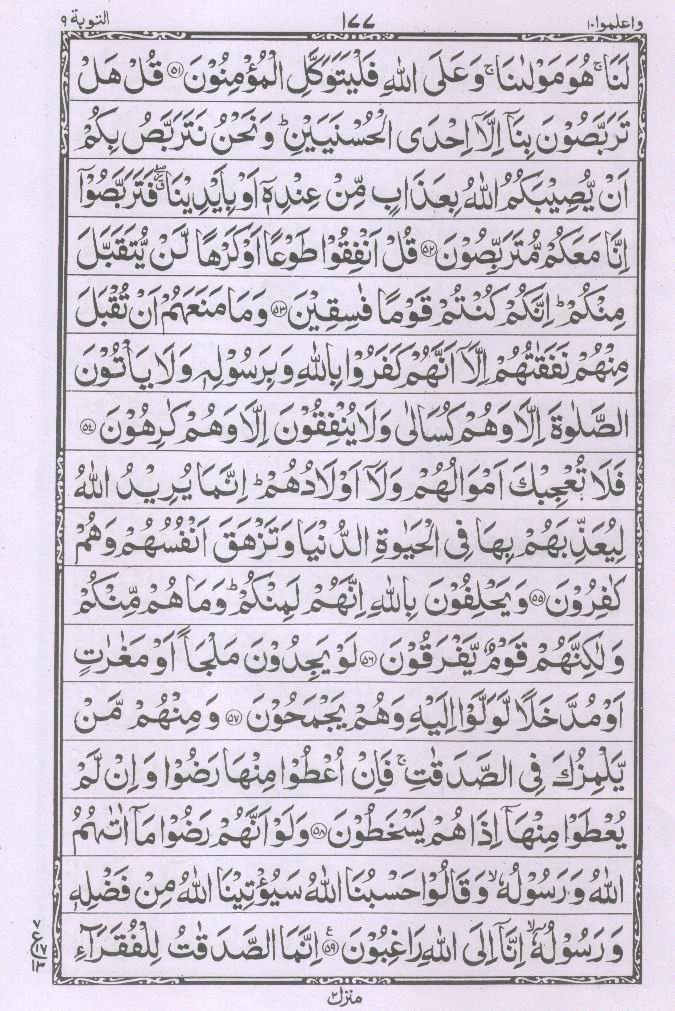 واعلموا ١٠
١٧٧
التوبة ٩
لَنَا ۚ هُوَ مَوْلٰىنَا ۚ وَعَلَى اللّٰهِ فَلْيَتَوَكَّلِ الْمُؤْمِنُوْنَ ۝٥١ قُلْ هَلْ
تَرَبَّصُوْنَ بِنَاۤ اِلَّاۤ اِحْدَى الْحُسْنَيَيْنِ ؕ وَنَحْنُ نَتَرَبَّصُ بِكُمْ
اَنْ يُّصِيْبَكُمُ اللّٰهُ بِعَذَابٍ مِّنْ عِنْدِهٖۤ اَوْ بِاَيْدِيْنَا ۖ فَتَرَبَّصُوْۤا
اِنَّا مَعَكُمْ مُّتَرَبِّصُوْنَ ۝٥٢ قُلْ اَنْفِقُوْا طَوْعًا اَوْ كَرْهًا لَّنْ يُّتَقَبَّلَ
مِنْكُمْ ؕ اِنَّكُمْ كُنْتُمْ قَوْمًا فٰسِقِيْنَ ۝٥٣ وَمَا مَنَعَهُمْ اَنْ تُقْبَلَ
مِنْهُمْ نَفَقٰتُهُمْ اِلَّاۤ اَنَّهُمْ كَفَرُوْا بِاللّٰهِ وَبِرَسُوْلِهٖ وَلَا يَاْتُوْنَ
الصَّلٰوةَ اِلَّا وَهُمْ كُسَالٰى وَلَا يُنْفِقُوْنَ اِلَّا وَهُمْ كٰرِهُوْنَ ۝٥٤
فَلَا تُعْجِبْكَ اَمْوَالُهُمْ وَلَاۤ اَوْلَادُهُمْ ؕ اِنَّمَا يُرِيْدُ اللّٰهُ
لِيُعَذِّبَهُمْ بِهَا فِى الْحَيٰوةِ الدُّنْيَا وَتَزْهَقَ اَنْفُسُهُمْ وَهُمْ
كٰفِرُوْنَ ۝٥٥ وَيَحْلِفُوْنَ بِاللّٰهِ اِنَّهُمْ لَمِنْكُمْ ؕ وَمَا هُمْ مِّنْكُمْ
وَلٰكِنَّهُمْ قَوْمٌ يَّفْرَقُوْنَ ۝٥٦ لَوْ يَجِدُوْنَ مَلْجَاً اَوْ مَغٰرٰتٍ
اَوْ مُدَّخَلًا لَّوَلَّوْا اِلَيْهِ وَهُمْ يَجْمَحُوْنَ ۝٥٧ وَمِنْهُمْ مَّنْ
يَّلْمِزُكَ فِى الصَّدَقٰتِ ۚ فَاِنْ اُعْطُوْا مِنْهَا رَضُوْا وَاِنْ لَّمْ
يُعْطَوْا مِنْهَاۤ اِذَا هُمْ يَسْخَطُوْنَ ۝٥٨ وَلَوْ اَنَّهُمْ رَضُوْا مَاۤ اٰتٰىهُمُ
اللّٰهُ وَرَسُوْلُهٗ ۙ وَقَالُوْا حَسْبُنَا اللّٰهُ سَيُؤْتِيْنَا اللّٰهُ مِنْ فَضْلِهٖ
وَرَسُوْلُهٗۤ ۙ اِنَّاۤ اِلَى اللّٰهِ رَاغِبُوْنَ ۝٥٩ اِنَّمَا الصَّدَقٰتُ لِلْفُقَرَآءِ
٧
ع ١٧
١٣
منزل ٢